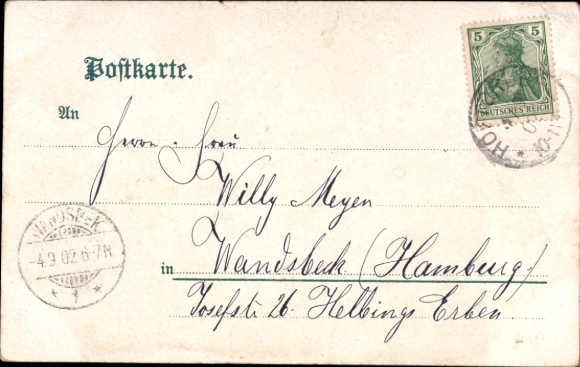 Postkarte.
5 5
DEUTSCHES REICH
HO
10-11
An
Herrn. Frau
Willy Meyen
WANDSBEK
4.9.02 6-7N
* 1 *
in Wandsbeck (Hamburg)
Josefstr 26. Helbings Erben.